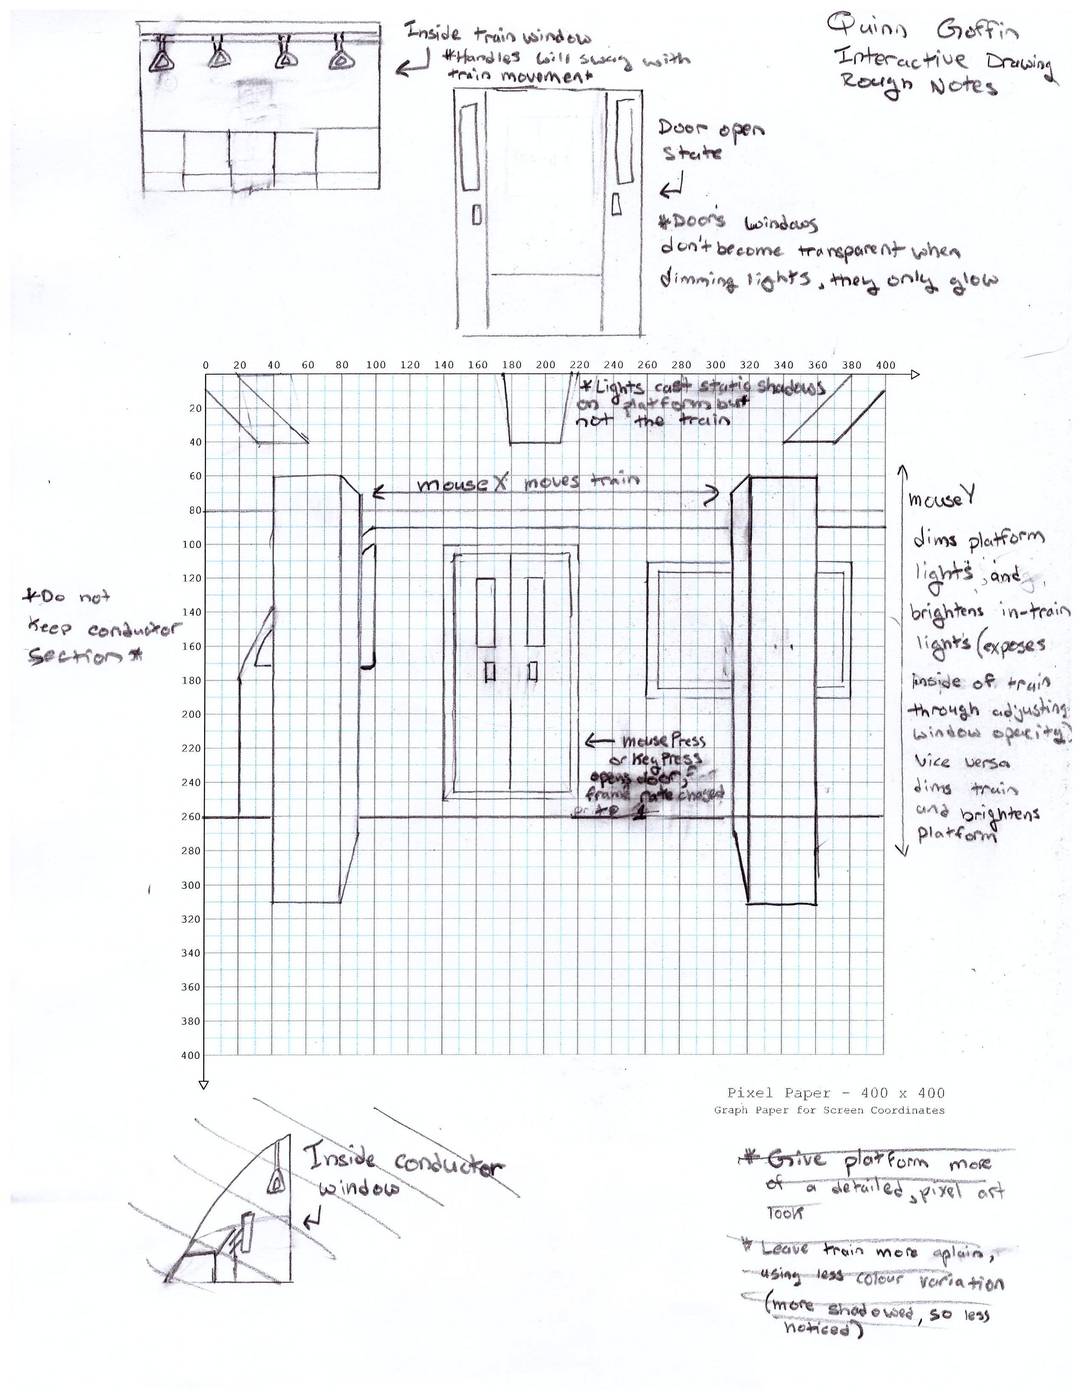 Quinn Goffin
Interactive Drawing
Rough Notes
Inside train window
*Handles will sway with
train movement
Door open
state
*Door's windows
don't become transparent when
dimming lights, they only glow
0 20 40 60 80 100 120 140 160 180 200 220 240 260 280 300 320 340 360 380 400
*Lights cast static shadows
on platform but
not the train
mouseX moves train
mouseY
dims platform
lights, and
brightens in-train
lights (exposes
inside of train
through adjusting
window opacity)
vice versa
dims train
and brightens
platform
*Do not
keep conductor
section*
mousePress
or KeyPress
opens door,
frame rate
to 1
20
40
60
80
100
120
140
160
180
200
220
240
260
280
300
320
340
360
380
400
Pixel Paper - 400 x 400
Graph Paper for Screen Coordinates
Inside conductor
window
* Give platform more
of a detailed, pixel art
look
* Leave train more plain,
using less colour variation
(more shadowed, so less
noticed)